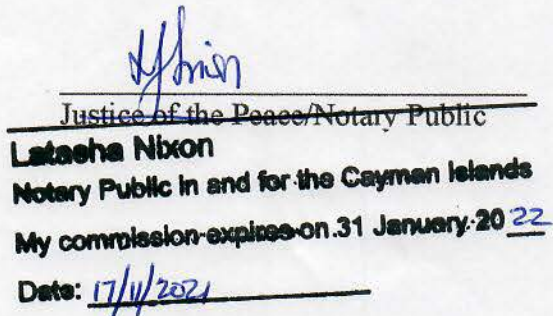 Justice of the Peace/Notary Public
Latasha Nixon
Notary Public in and for the Cayman Islands
My commission expires on 31 January 2022
Date: 17/11/2021